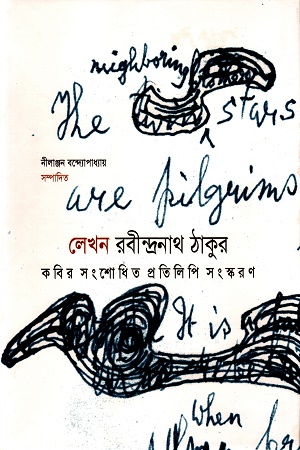 neighboring
The stars
নীলাঞ্জন বন্দ্যোপাধ্যায়
সম্পাদিত
are pilgrims
লেখন রবীন্দ্রনাথ ঠাকুর
কবির সংশোধিত প্রতিলিপি সংস্করণ
It is
When